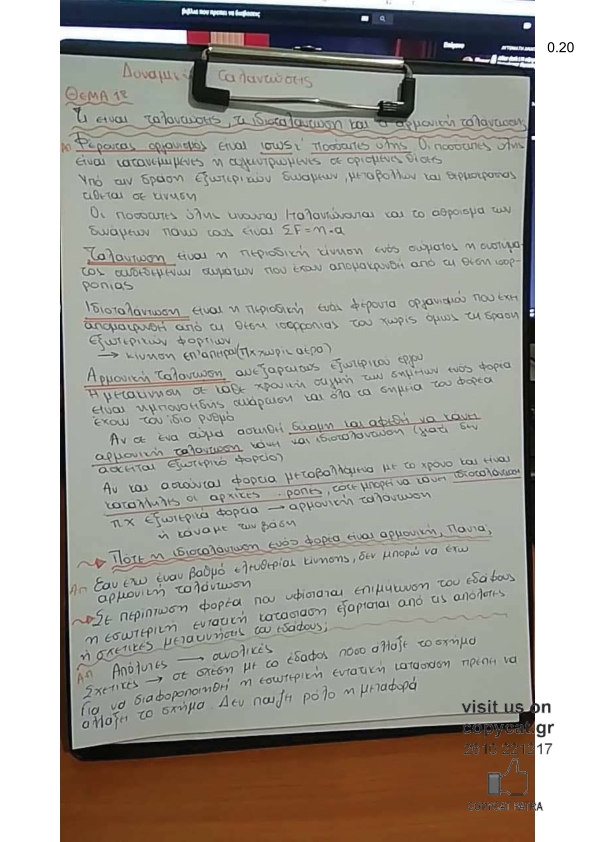 βιβλια που πρεπει να διαβασεις
0.20
Επόμενο
Δυναμι ταλαντώσεις
ΘΕΜΑ 1β
Τι ειναι ταλαντωσεις, τι ιδιοταλαντωση και τι αρμονικη ταλαντωση;
Απ Φερωντας οργανισμος ειναι ισως ποσοτητες ύλης. Οι ποσοτητες υλης
ειναι κατανεμημενες η συγκεντρωμενες σε ορισμενες θεσεις
Υπό την δραση εξωτερικών δυνάμεων, μεταβολλων και θερμοκρασιας
τίθεται σε κινηση
Οι ποσοτητες ύλης κινουνται / ταλαντώνονται και το αθροισμα των
δυνάμεων πανω τους ειναι ΣF = m·a
Ταλαντωση ειναι η περιοδικη κίνηση ενός σωματος η συστημα-
τος συνδεδεμενων σωματων που εχουν απομακρυνθει από τη θεση ισορ-
ροπιας
Ιδιοταλαντωση ειναι η περιοδικη ενός φεροντα οργανισμού που εχει
απομακρυνθει από τη θεση ισορροπιας του χωρίς όμως τη δραση
εξωτερικων φορτιων
→ κινηση επ'απειρο (πχ χωρίς αέρα)
Αρμονικη ταλαντωση ανεξαρτητως εξωτερικου εργου
Η μετακινηση σε κάθε χρονικη στιγμη των σημειων ενός φορεα
ειναι ημιτονοειδης συνάρτηση και όλα τα σημεία του φορεα
εχουν τον ιδιο ρυθμό
Αν σε ένα σώμα ασκηθεί δυναμη και αφεθή να κανει
αρμονικη ταλαντωση κάνει και ιδιοταλαντωση (γιατι δεν
ασκειται εξωτερικό φορτίο)
Αν και ασκούνται φορτια μεταβαλλομενα με το χρονο και ειναι
καταλληλες οι αρχικές ροπες, τότε μπορεί να κάνει ιδιοταλαντωση
π.χ εξωτερικά φορτία → αρμονικη ταλαντωση
ή κάναμε την βαση
Πότε η ιδιοταλάντωση ενός φορέα ειναι αρμονική, Παντα;
Απ Εαν εχω εναν βαθμό ελευθεριας κίνησης, δεν μπορώ να εχω
αρμονικη ταλάντωση
Σε περίπτωση φορέα που υφίσταται επιμηκυνση του εδάφους
η εσωτερική εντατική κατασταση εξαρταται από τις απόλυτες
ή σχετικες μετακινησεις του εδάφους;
Απ Απόλυτες → συνολικές
Σχετικες → σε σχεση με το έδαφος πόσο αλλαξε το σχήμα
Για να διαφοροποιηθεί η εσωτερικη εντατική κατασταση πρεπει να
αλλαξει το σχήμα. Δεν παιζει ρόλο η μεταφορά
visit us on
copycat.gr
COPYCAT PATRA